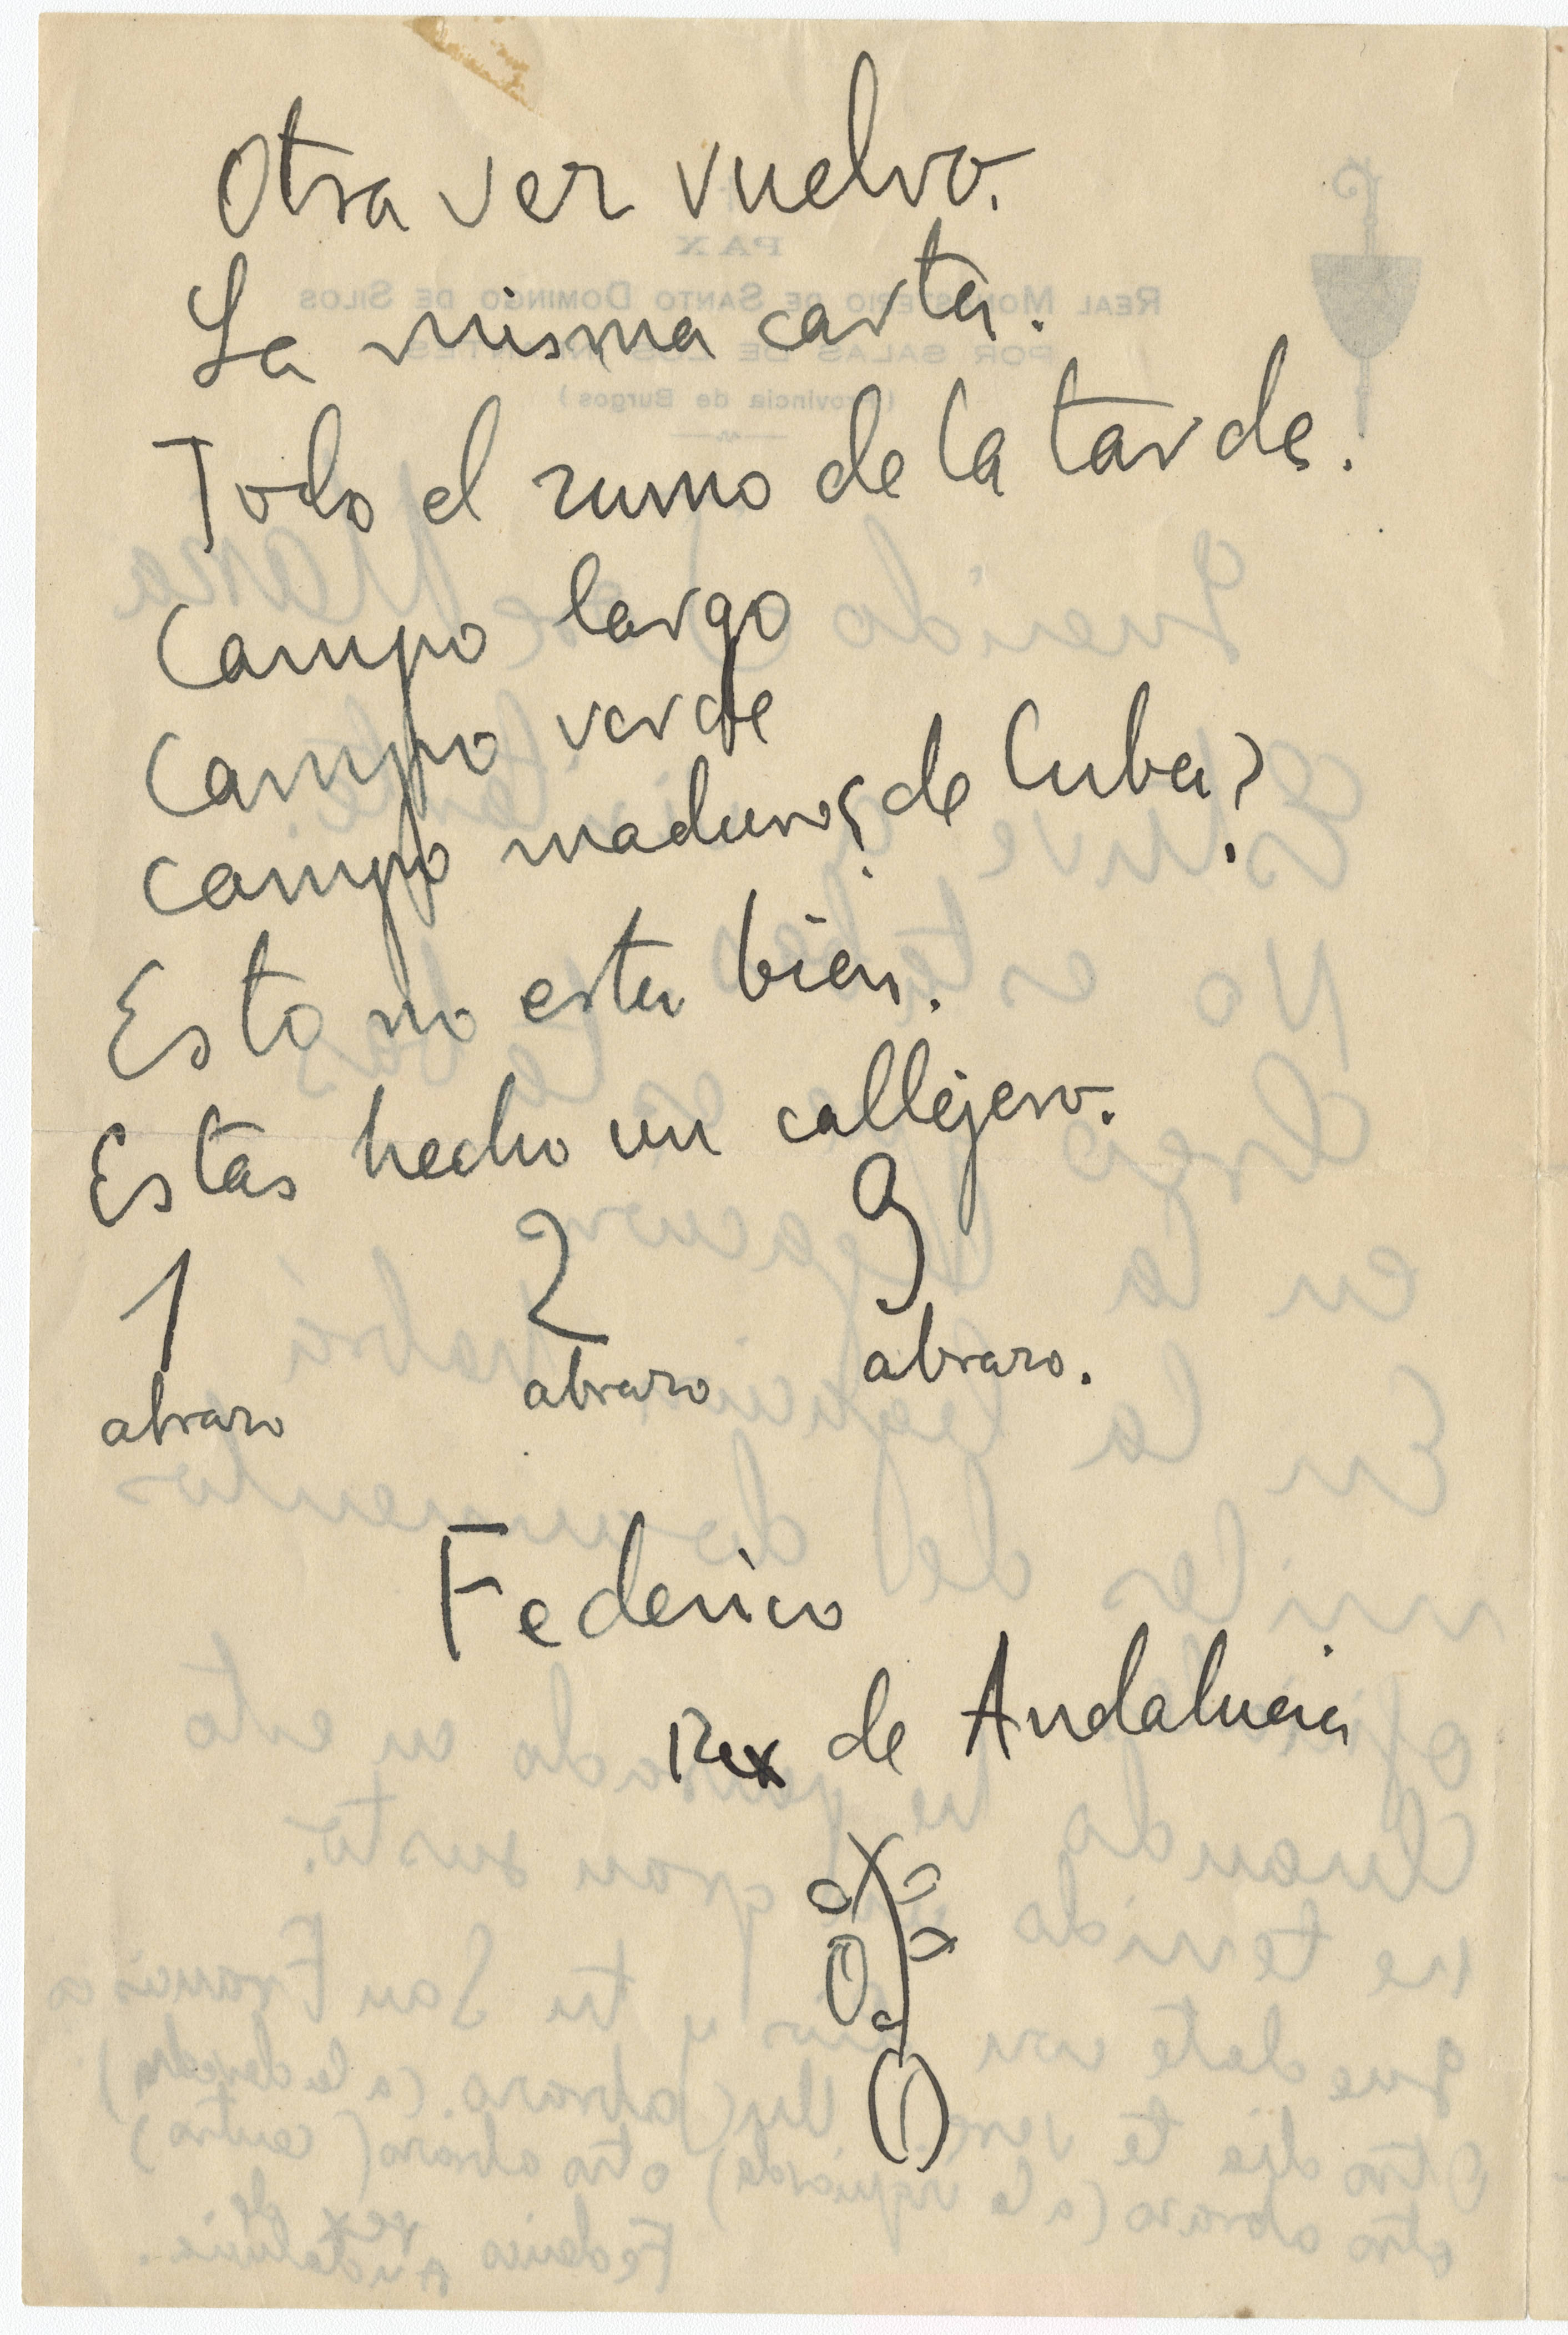 Otra vez vuelvo.
La misma carta.
Todo el zumo de la tarde.
Campo largo
Campo verde
Campo maduro ¿de Cuba?
Esto no esta bien.
Estas hecho un callejero.
1 2 3
abrazo abrazo abrazo.
Federico
Rex de Andalucia